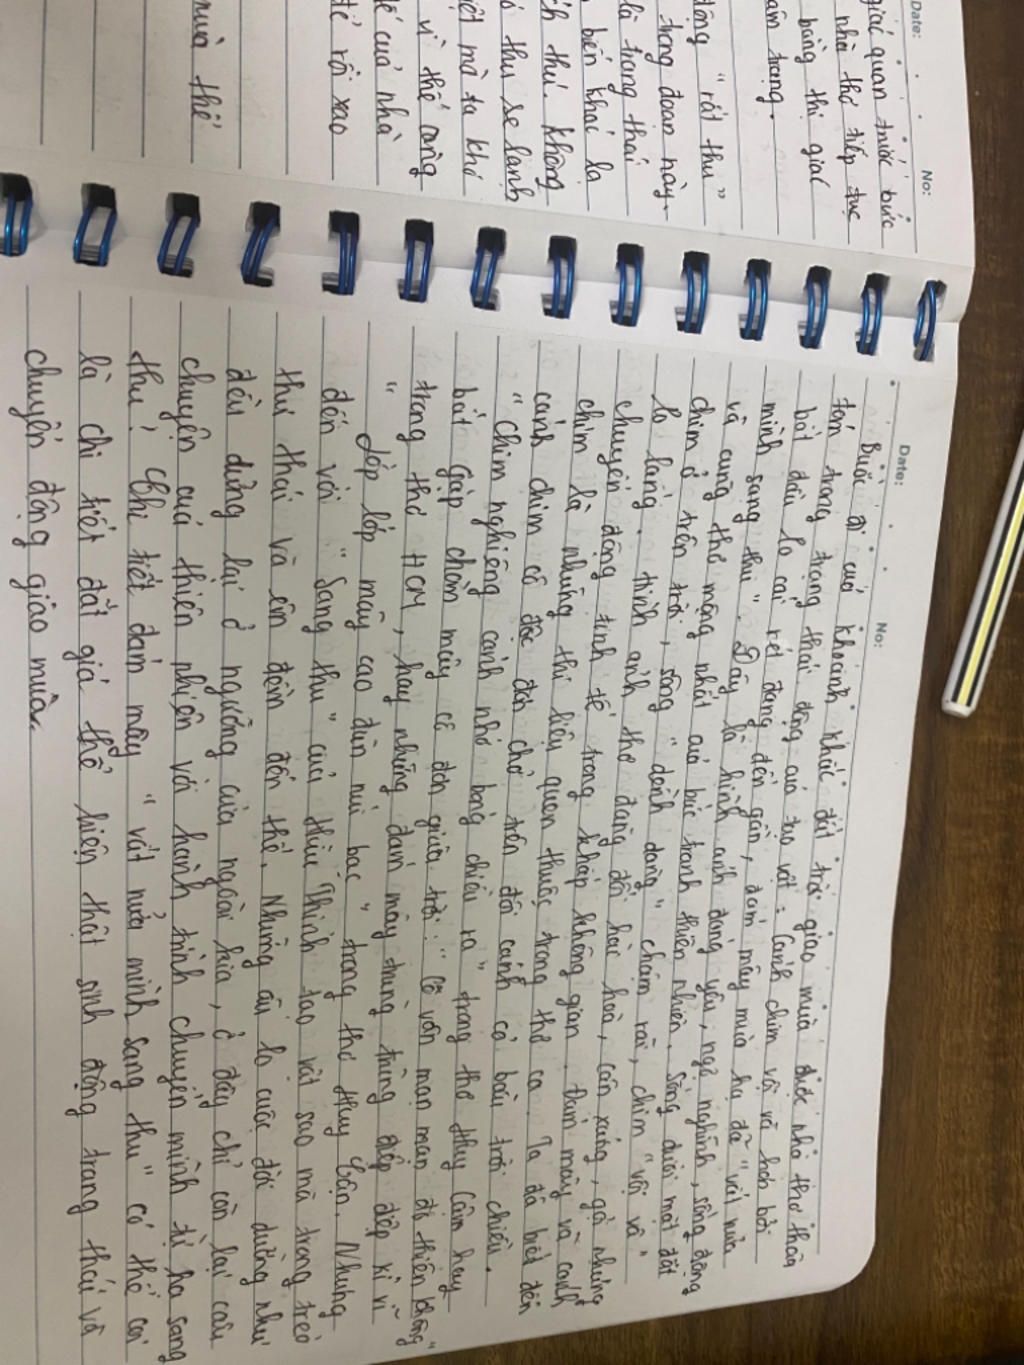 Date:
No:
giác quan trước bức
nhà thơ tiếp tục
bằng thị giác
âm trạng.
động " rất thu "
trong đoạn này.
là trong thái
biến khác lạ
ch thu. không
ó thu se lạnh
iết mà ta khó
vì thế càng
tế của nhà
tể rồi xao
mùa thế
Date:
No:
Bước đi cuối khoảnh khắc đất trời giao mùa được nhà thơ thâu
tóm trong trạng thái động của sự vật : Cánh chim vội vã hơn bởi
bắt đầu lo cái rét đang đến gần, đám mây mùa hạ đã " vắt nửa
mình sang thu " . Đây là hình ảnh đáng yêu, ngộ nghĩnh, sống động
và cũng thơ mộng nhất của bức tranh thiên nhiên. Sông dưới mặt đất
chim ở trên trời, sông " dềnh dàng " chậm rãi, chim " vội vã "
lo lắng. Hình ảnh thơ đăng đối hài hoà, cân xứng, gợi những
chuyển động tinh tế trong khắp không gian. Đám mây và cánh
chim là những thi liệu quen thuộc trong thơ ca. Ta đã biết đến
cánh chim cô độc đơn chở trên đôi cánh cả bầu trời chiều.
" Chim nghiêng cánh nhỏ bóng chiều ra " trong thơ Huy Cận hay
bắt gặp chòm mây cô đơn giữa trời : " Cô vân mạn mạn độ thiên không "
trong thơ HCM, hay những đám mây trùng trùng điệp điệp kì vĩ
" Lớp lớp mây cao đùn núi bạc " trong thơ Huy Cận. Nhưng
đến với " Sang thu " của Hữu Thỉnh tạo vật sao mà trong trẻo
thư thái và êm đềm đến thế. Những âu lo cuộc đời dường như
đều dừng lại ở ngưỡng cửa ngoài kia, ở đây chỉ còn lại câu
chuyện của thiên nhiên với hành trình chuyển mình từ hạ sang
thu. Chi tiết đám mây " vắt nửa mình sang thu " có thể coi
là chi tiết đắt giá thể hiện thật sinh động trạng thái và
chuyển động giao mùa.